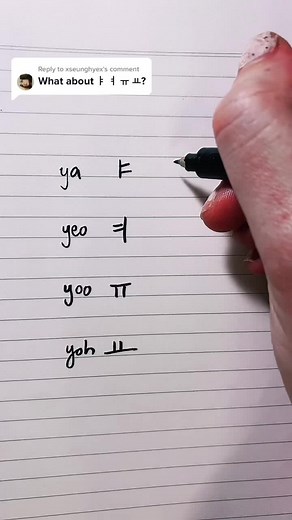 Reply to xseunghyex's comment
What about ㅑㅕㅠㅛ?
ya ㅑ
yeo ㅕ
yoo ㅠ
yoh ㅛ